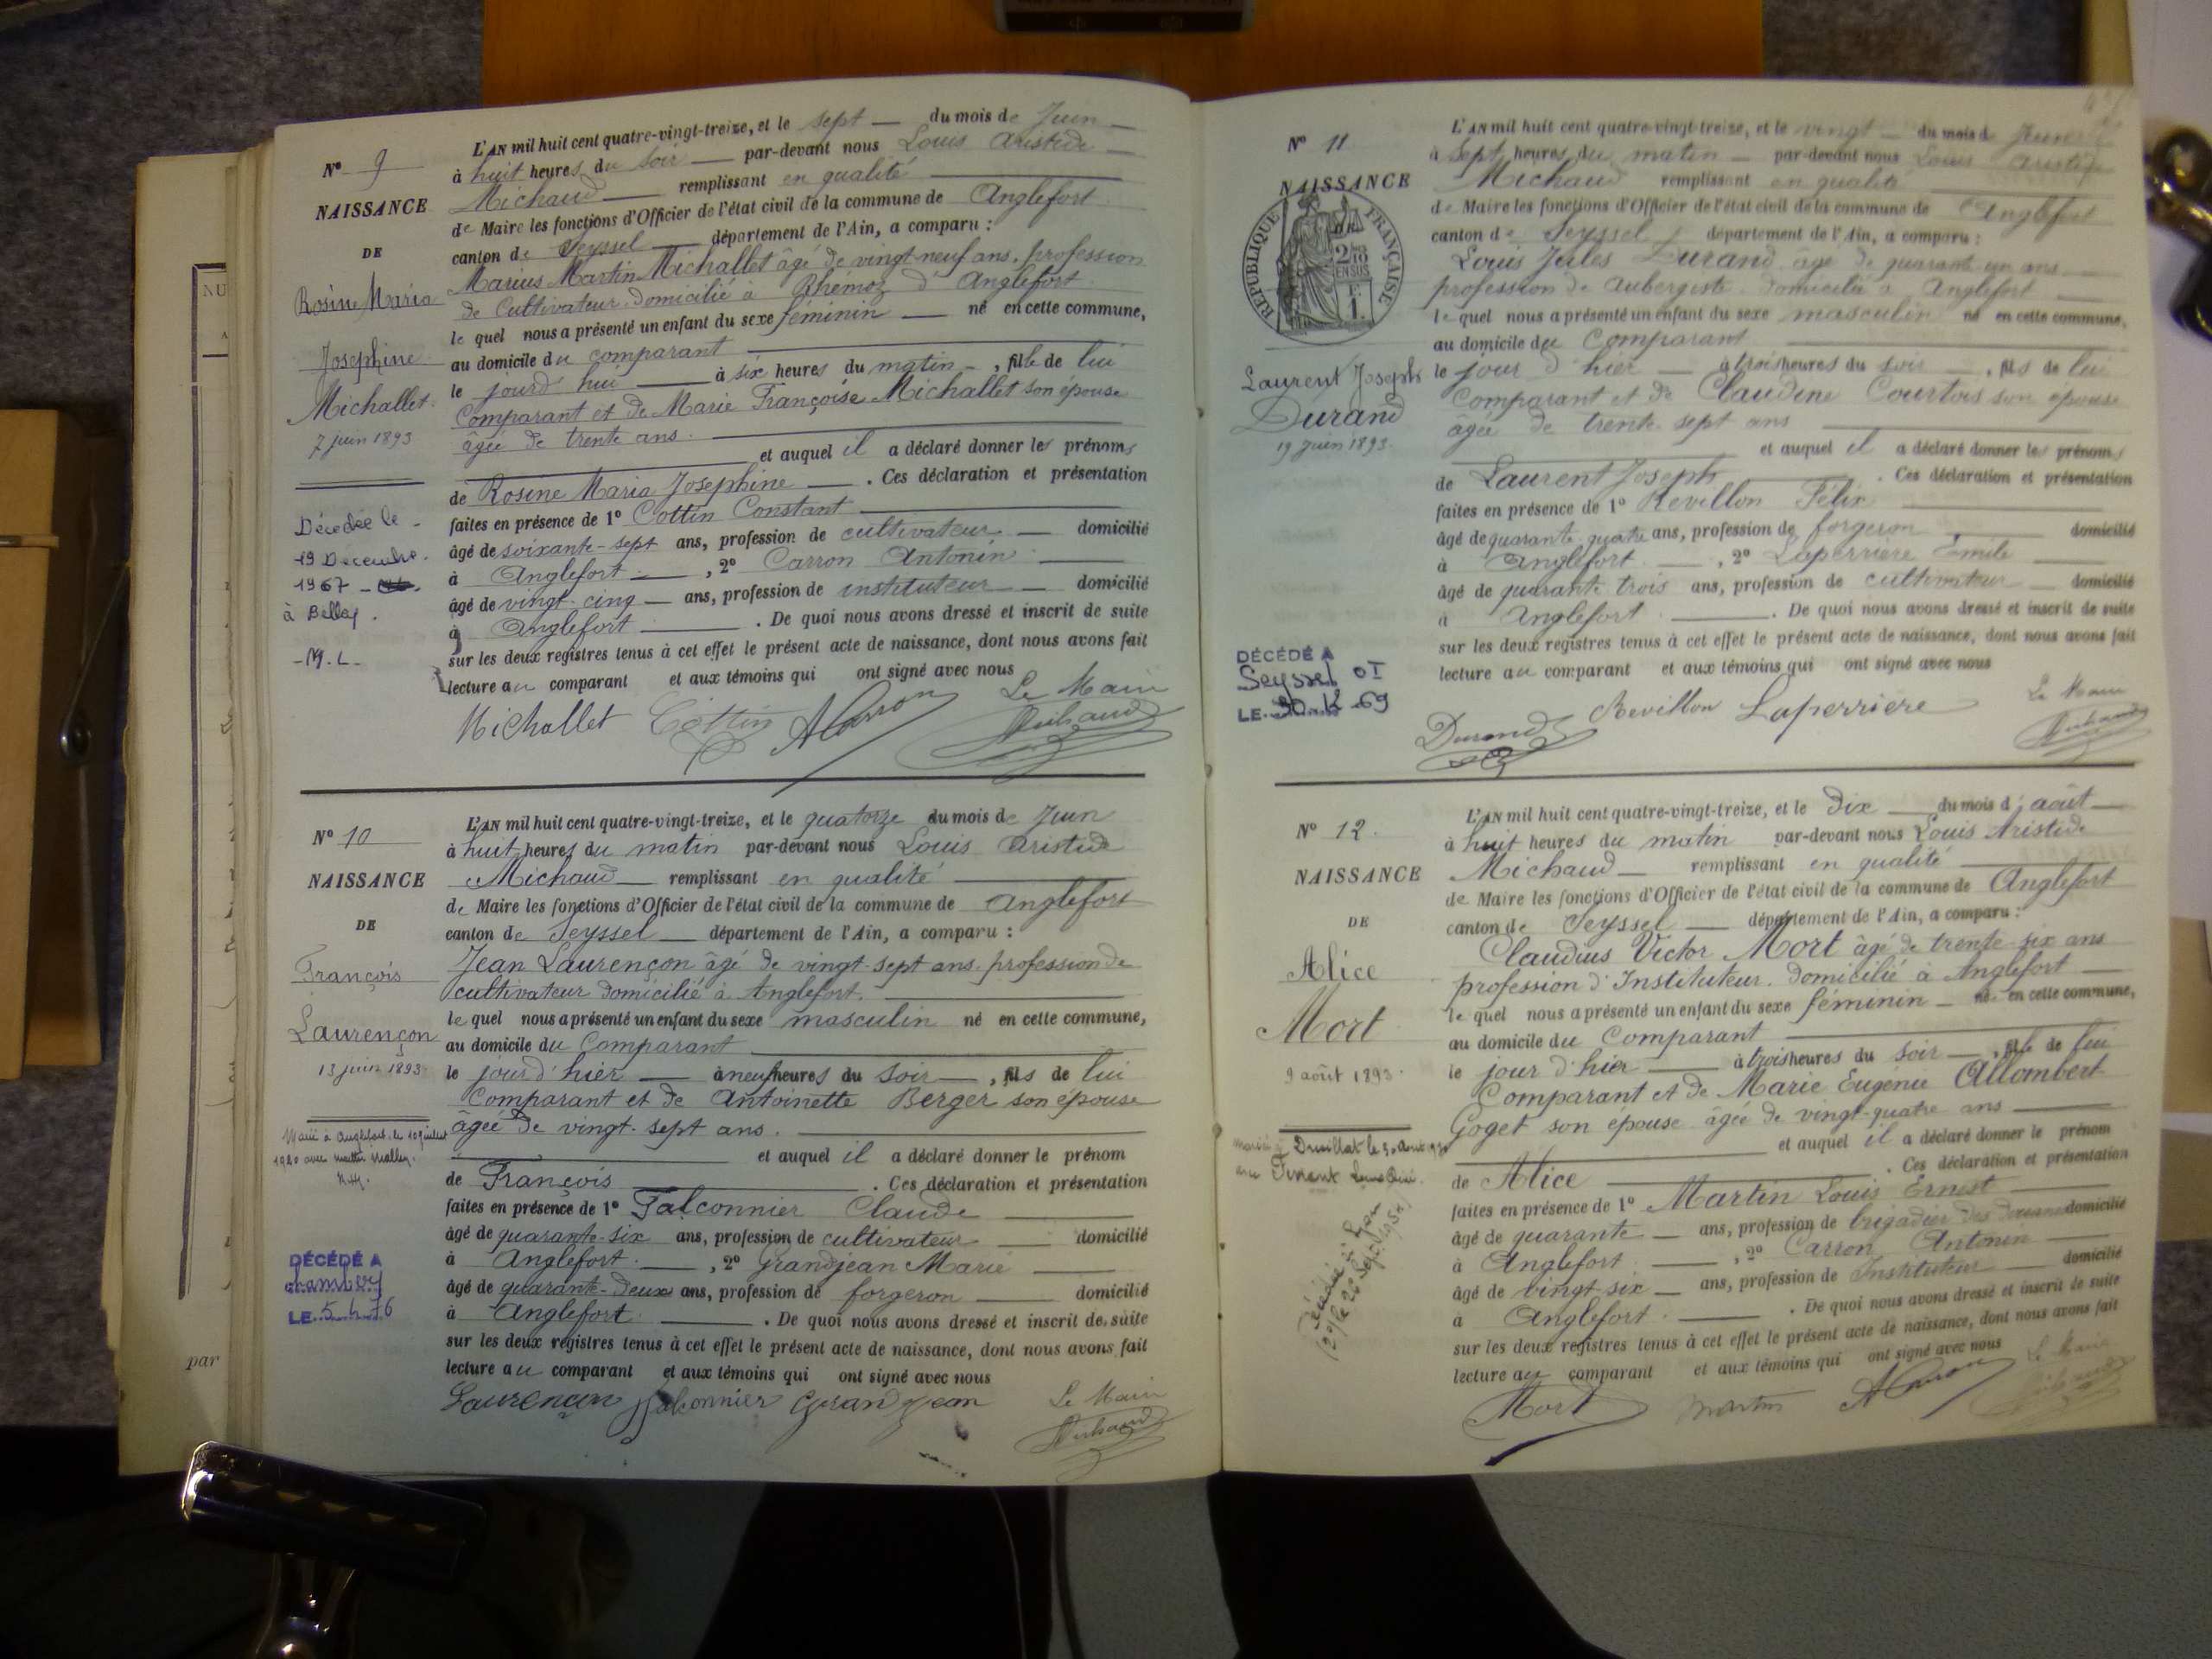 N° 9
NAISSANCE
DE
Rosine Maria
Josephine
Michallet
7 juin 1893
Décédée le
19 Décembre
1967
à Belley.
L'AN mil huit cent quatre-vingt-treize, et le sept du mois de Juin
à huit heures du soir par-devant nous Louis Aristide
Michaud remplissant en qualité
de Maire les fonctions d'Officier de l'état civil de la commune de Anglefort
canton de Seyssel département de l'Ain, a comparu :
Marius Martin Michallet âgé de vingt-neuf ans, profession
de Cultivateur domicilié à Rhémoz d'Anglefort
le quel nous a présenté un enfant du sexe féminin né en cette commune,
au domicile du comparant
le jourd'hui à six heures du matin, fille de lui
Comparant et de Marie Françoise Michallet son épouse
âgée de trente ans.
et auquel il a déclaré donner les prénoms
de Rosine Maria Josephine. Ces déclaration et présentation
faites en présence de 1° Cottin Constant
âgé de soixante-sept ans, profession de cultivateur domicilié
à Anglefort, 2° Carron Antonin
âgé de vingt-cinq ans, profession de instituteur domicilié
à Anglefort. De quoi nous avons dressé et inscrit de suite
sur les deux registres tenus à cet effet le présent acte de naissance, dont nous avons fait
lecture au comparant et aux témoins qui ont signé avec nous
Le Maire
Michallet Cottin ACarron Michaud
N° 10
NAISSANCE
DE
François
Laurençon
13 juin 1893
Marié à Anglefort le 10 juillet
1920 avec
DÉCÉDÉ A
LE 5.4.76
L'AN mil huit cent quatre-vingt-treize, et le quatorze du mois de Juin
à huit heures du matin par-devant nous Louis Aristide
Michaud remplissant en qualité
de Maire les fonctions d'Officier de l'état civil de la commune de Anglefort
canton de Seyssel département de l'Ain, a comparu :
Jean Laurençon âgé de vingt-sept ans profession de
cultivateur domicilié à Anglefort.
le quel nous a présenté un enfant du sexe masculin né en cette commune,
au domicile du Comparant
le jour d'hier à neuf heures du soir, fils de lui
Comparant et de Antoinette Berger son épouse
âgée de vingt-sept ans.
et auquel il a déclaré donner le prénom
de François. Ces déclaration et présentation
faites en présence de 1° Falconnier Claude
âgé de quarante-six ans, profession de cultivateur domicilié
à Anglefort, 2° Grandjean Marie
âgé de quarante-deux ans, profession de forgeron domicilié
à Anglefort. De quoi nous avons dressé et inscrit de suite
sur les deux registres tenus à cet effet le présent acte de naissance, dont nous avons fait
lecture au comparant et aux témoins qui ont signé avec nous
Laurençon Falconnier Grandjean Le Maire
Michaud
par
N° 11
NAISSANCE
DE
RÉPUBLIQUE FRANÇAISE
Laurent Joseph
Durand
19 Juin 1893
DÉCÉDÉ A
Seyssel 01
LE 30.12.69
L'AN mil huit cent quatre-vingt-treize, et le vingt du mois de Juin
à Sept heures du matin par-devant nous Louis Aristide
Michaud remplissant en qualité
de Maire les fonctions d'Officier de l'état civil de la commune de Anglefort
canton de Seyssel département de l'Ain, a comparu :
Louis Jules Durand âgé de quarante-un ans
profession de Aubergiste domicilié à Anglefort
le quel nous a présenté un enfant du sexe masculin né en cette commune,
au domicile du Comparant
le jour d'hier à trois heures du soir, fils de lui
Comparant et de Claudine Courtois son épouse
âgée de trente-sept ans
et auquel il a déclaré donner les prénoms
de Laurent Joseph. Ces déclaration et présentation
faites en présence de 1° Revillon Félix
âgé de quarante quatre ans, profession de forgeron domicilié
à Anglefort, 2° Laperrière Emile
âgé de quarante trois ans, profession de cultivateur domicilié
à Anglefort. De quoi nous avons dressé et inscrit de suite
sur les deux registres tenus à cet effet le présent acte de naissance, dont nous avons fait
lecture au comparant et aux témoins qui ont signé avec nous
Le Maire
Durand Revillon Laperriere Michaud
N° 12.
NAISSANCE
DE
Alice
Mort
9 août 1893
Décédée à Lyon
L'AN mil huit cent quatre-vingt-treize, et le Dix du mois d'août
à huit heures du matin par-devant nous Louis Aristide
Michaud remplissant en qualité
de Maire les fonctions d'Officier de l'état civil de la commune de Anglefort
canton de Seyssel département de l'Ain, a comparu :
Claudius Victor Mort âgé de trente-six ans
profession d'Instituteur domicilié à Anglefort
le quel nous a présenté un enfant du sexe féminin né en cette commune,
au domicile du Comparant
le jour d'hier à trois heures du soir, fille de lui
Comparant et de Marie Eugénie Allombert
Goget son épouse âgée de vingt-quatre ans
et auquel il a déclaré donner le prénom
de Alice. Ces déclaration et présentation
faites en présence de 1° Martin Louis Ernest
âgé de quarante ans, profession de brigadier des douanes domicilié
à Anglefort, 2° Carron Antonin
âgé de vingt-six ans, profession de Instituteur domicilié
à Anglefort. De quoi nous avons dressé et inscrit de suite
sur les deux registres tenus à cet effet le présent acte de naissance, dont nous avons fait
lecture au comparant et aux témoins qui ont signé avec nous
Le Maire
Mort Martin ACarron Michaud